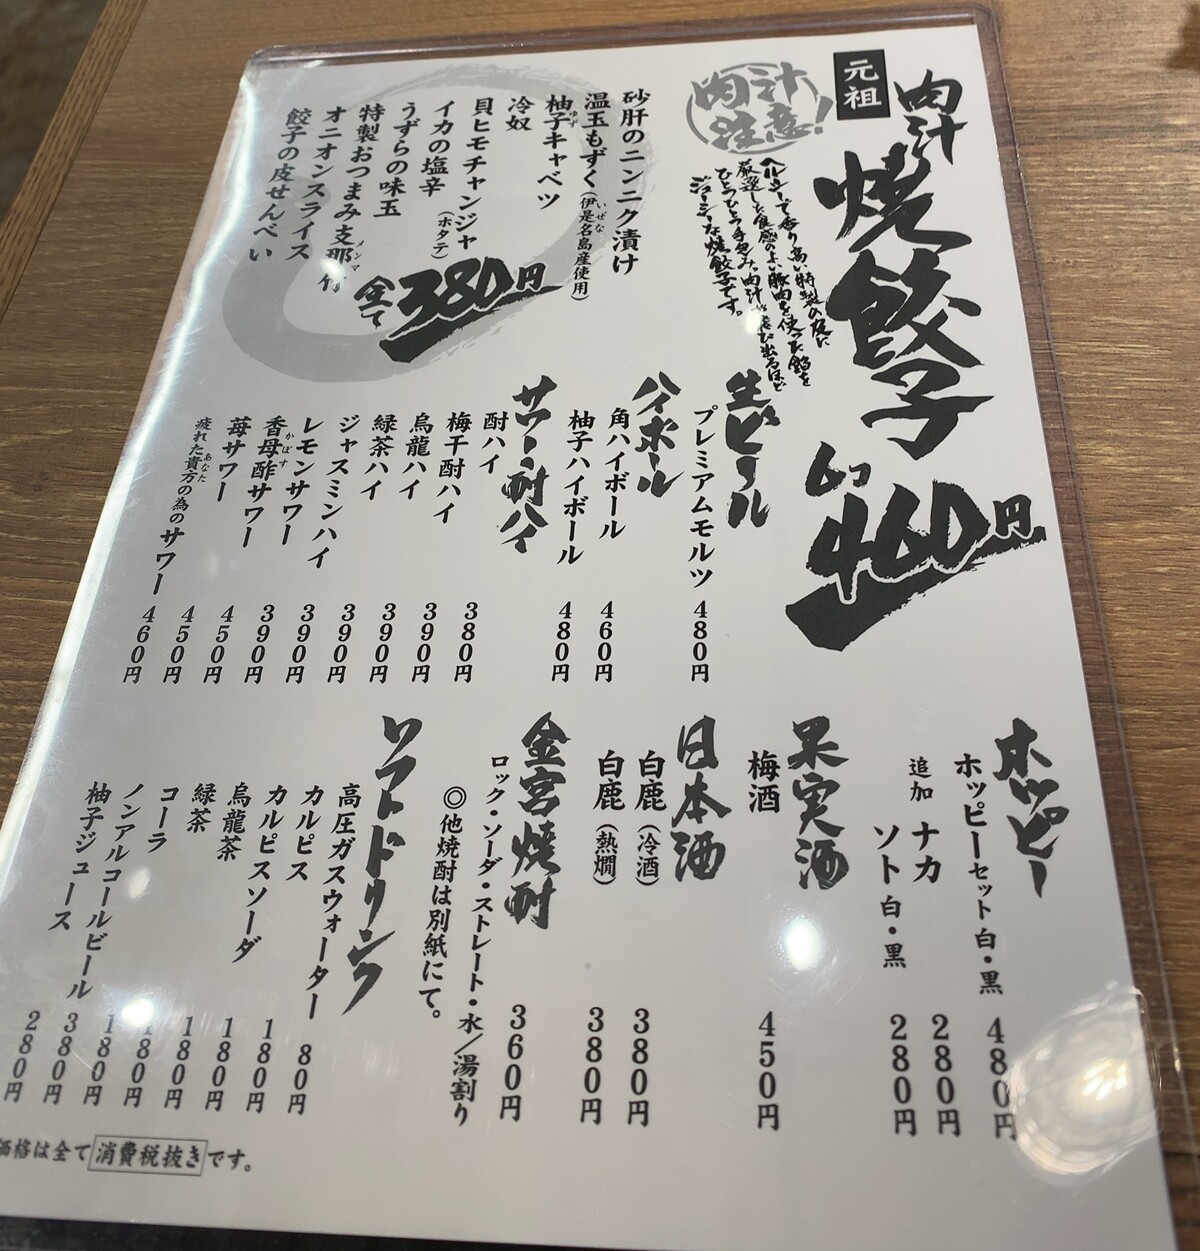 元祖
肉汁
焼餃子
6コ
460円
肉汁注意!
ヘルシーで香り高い特製の皮に
厳選した食感のよい豚肉を使った餡を
ひとつひとつ手包み。肉汁が飛び出るほど
ジューシーな焼餃子です。
砂肝のニンニク漬け
温玉もずく(伊是名島産使用)
いぜな
柚子キャベツ
ゆず
冷奴
貝ヒモチャンジャ(ホタテ)
イカの塩辛
うずらの味玉
特製おつまみ支那竹
メンマ
オニオンスライス
餃子の皮せんべい
全て380円
生ビール
プレミアムモルツ 480円
ハイボール
角ハイボール 460円
柚子ハイボール 480円
サワー・酎ハイ
酎ハイ 380円
梅干酎ハイ 390円
烏龍ハイ 390円
緑茶ハイ 390円
ジャスミンハイ 390円
レモンサワー 390円
香母酢サワー 450円
かぼす
苺サワー 450円
疲れた貴方の為のサワー 460円
あなた
ホッピー
ホッピーセット 白・黒 480円
追加 ナカ 280円
ソト 白・黒 280円
果実酒
梅酒 450円
日本酒
白鹿(冷酒) 380円
白鹿(熱燗) 380円
金宮焼酎
ロック・ソーダ・ストレート・水/湯割り 360円
◎他焼酎は別紙にて。
ソフトドリンク
高圧ガスウォーター 80円
カルピス 180円
カルピスソーダ 180円
烏龍茶 180円
緑茶 180円
コーラ 180円
ノンアルコールビール 380円
柚子ジュース 280円
価格は全て消費税抜きです。